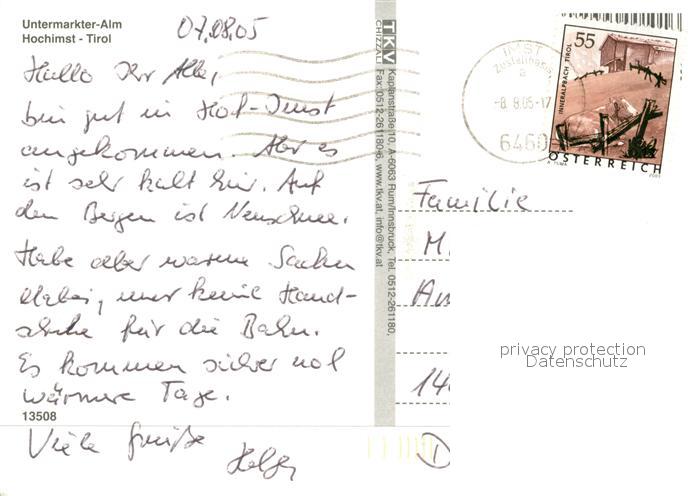 Untermarkter-Alm
Hochimst - Tirol
07.08.05
Hallo Ihr Alle,
bin gut in Hoch-Imst
angekommen. Aber es
ist sehr kalt hier. Auf
den Bergen ist Neuschnee.
Habe aber warme Sachen
dabei, nur keine Hand-
schuhe für die Bahn.
Es kommen sicher noch
wärmere Tage.
13508
Viele Grüße
Holger
TKV
CHIZZALI
Kaplanstraße 10, A-6063 Rum/Innsbruck, Tel. 0512-261180,
Fax: 0512-261180-6, www.tkv.at, info@tkv.at
IMST
Zustellbasis
a
-8.8.05-17
6460
55
INNERALPBACH TIROL
ÖSTERREICH
Familie
M
An
14
D
privacy protection
Datenschutz